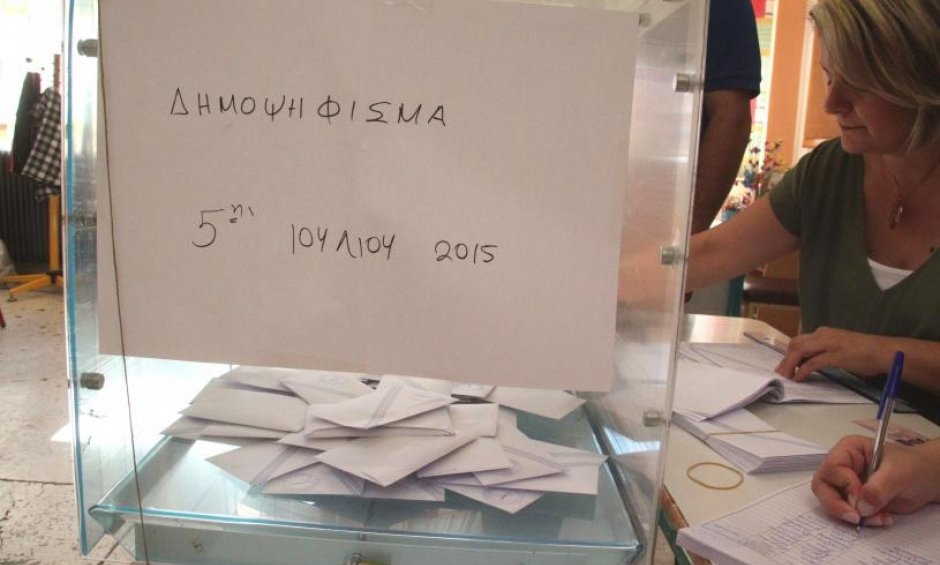 ΔΗΜΟΨΗΦΙΣΜΑ
5ης ΙΟΥΛΙΟΥ 2015